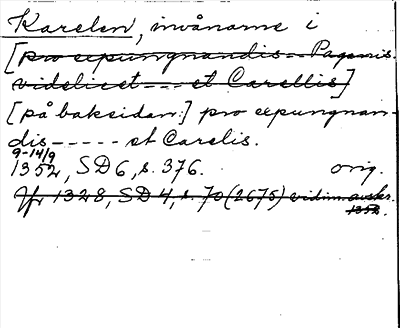 Karelen, invånarne i
[pro expungnandis -- Paganis
videlicet --- et Carellis]
[på baksidan:] pro expungnan-
dis ----- et Carelis.
9-14/9
1352, SD 6, s. 376. orig.
Jfr 1328, SD 4, s. 70 (2675) vidim. avskr.
1352.